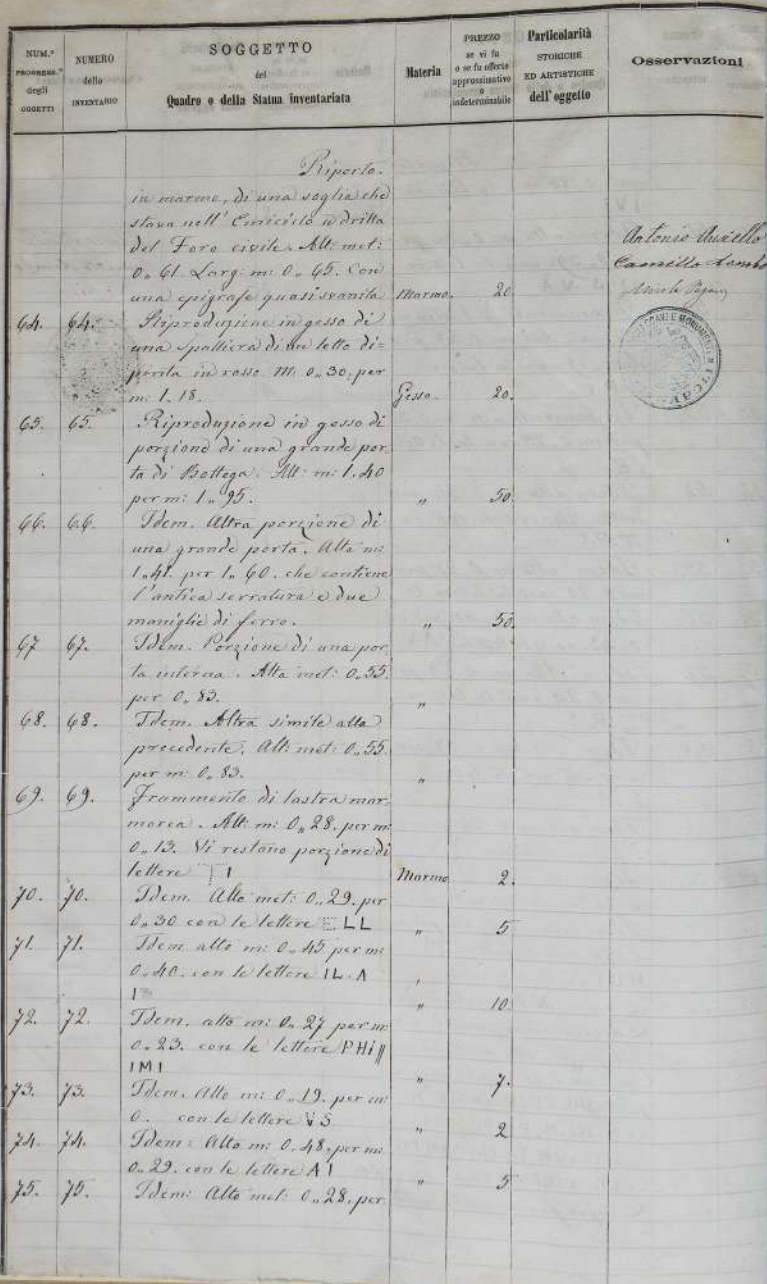 NUM.º PROGRESS.º degli OGGETTI
NUMERO dello INVENTARIO
SOGGETTO del Quadro o della Statua inventariata
Materia
PREZZO se vi fu o se fu offerto approssimativo o indeterminabile
Particolarità STORICHE ED ARTISTICHE dell'oggetto
Osservazioni
Riporto.
in marmo, di una soglia che
stava nell' Emiciclo a dritta
del Foro civile. Alt: met:
0,,61. Larg: m: 0,,65. Con
una epigrafe quasi svanita Marmo. 20
Antonio
Camillo
64. 64. Riproduzione in gesso di
una spalliera di un letto di=
pinta in rosso. M: 0,,30. per
m: 1,18. Gesso. 20.
65. 65. Riproduzione in gesso di
porzione di una grande por
ta di Bottega. Alt: m: 1.40
per m: 1,,95. ,, 50.
66. 66. Idem. Altra porzione di
una grande porta. Alta m:
1,,41. per 1,,60. che contiene
l'antica serratura e due
maniglie di ferro. ,, 50.
67 67. Idem. Porzione di una por
ta interna. Alta met: 0,,55.
per 0,,83. ,,
68. 68. Idem. Altra simile alla
precedente. Alt: met: 0,,55.
per m: 0,,83. ,,
69. 69. Frammento di lastra mar
morea. Alt: m: 0,,28. per m:
0,,13. Vi restano porzione di
lettere TI Marmo 2.
70. 70. Idem. Alto met: 0,,29. per
0,,30 con le lettere ELL ,, 5
71. 71. Idem alto m: 0,,45 per m:
0,,40. con le lettere IL·A
,, 10
72. 72. Idem. alto m: 0,,27 per m:
0,,23. con le lettere PHI||
IMI ,, 7.
73. 73. Idem. Alto m: 0,,19. per m:
0. con le lettere VS ,, 2
74. 74. Idem: Alto m: 0,,48, per m:
0,,29. con le lettere AI ,, 5
75. 75. Idem: Alto met: 0,,28, per